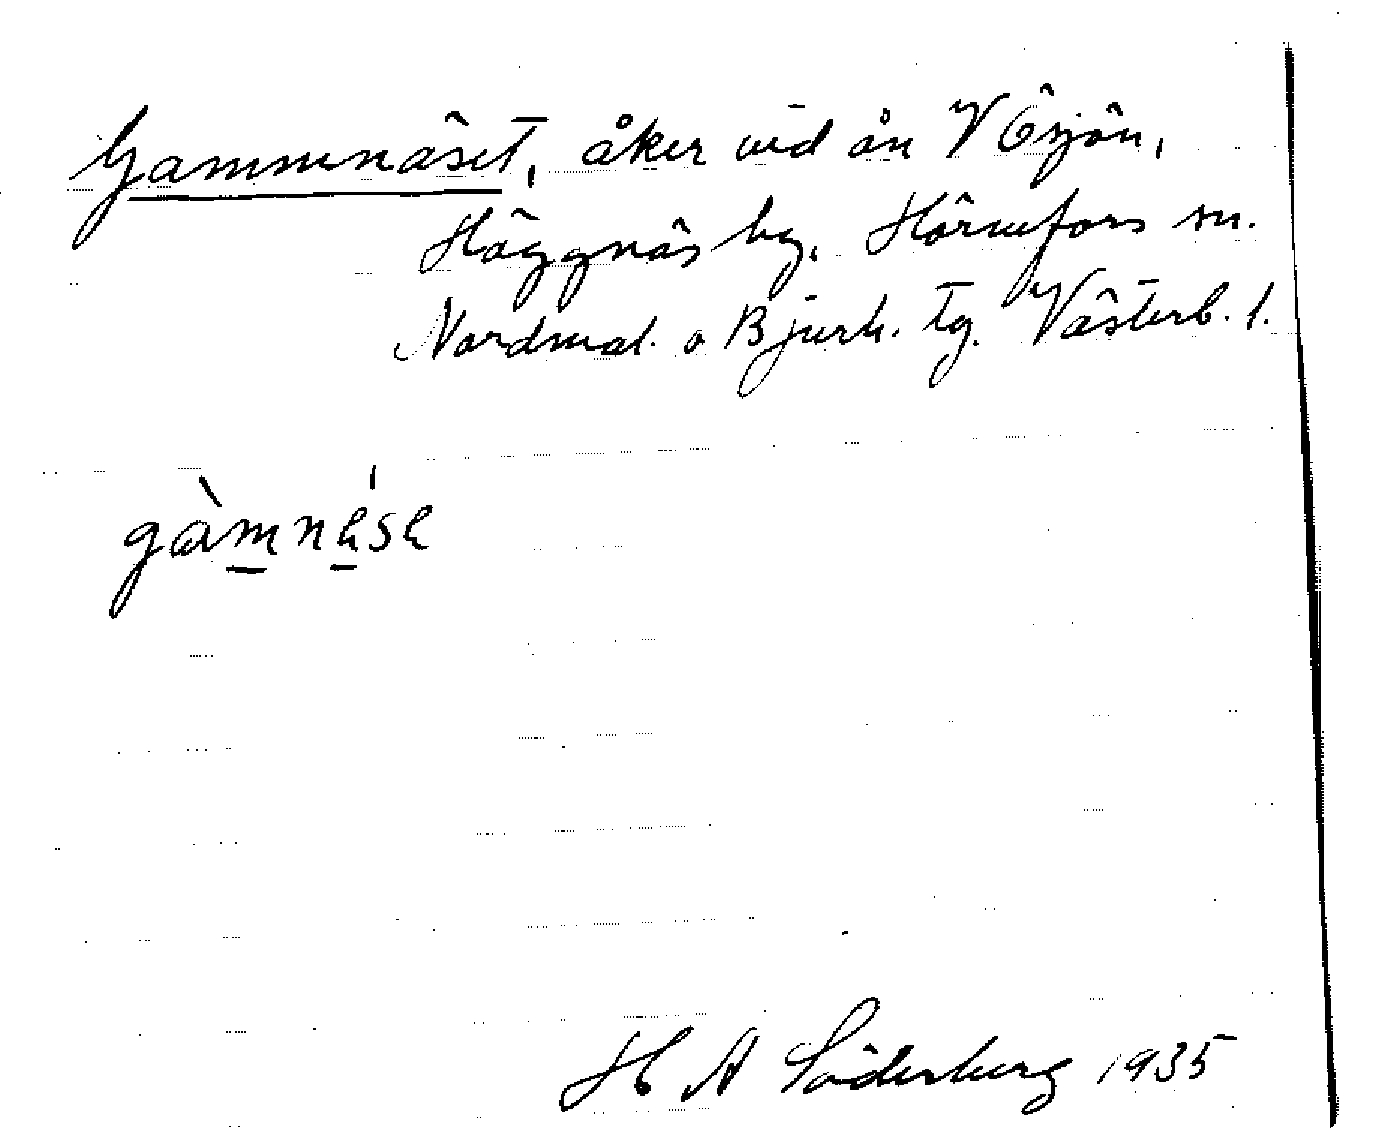 Gammnäset, åker vid ån V Ösjön,
Häggnäs by, Hörnefors sn.
Nordmal. o Bjurh. tg. Västerb. l.
gàmnése
H A Söderberg 1935